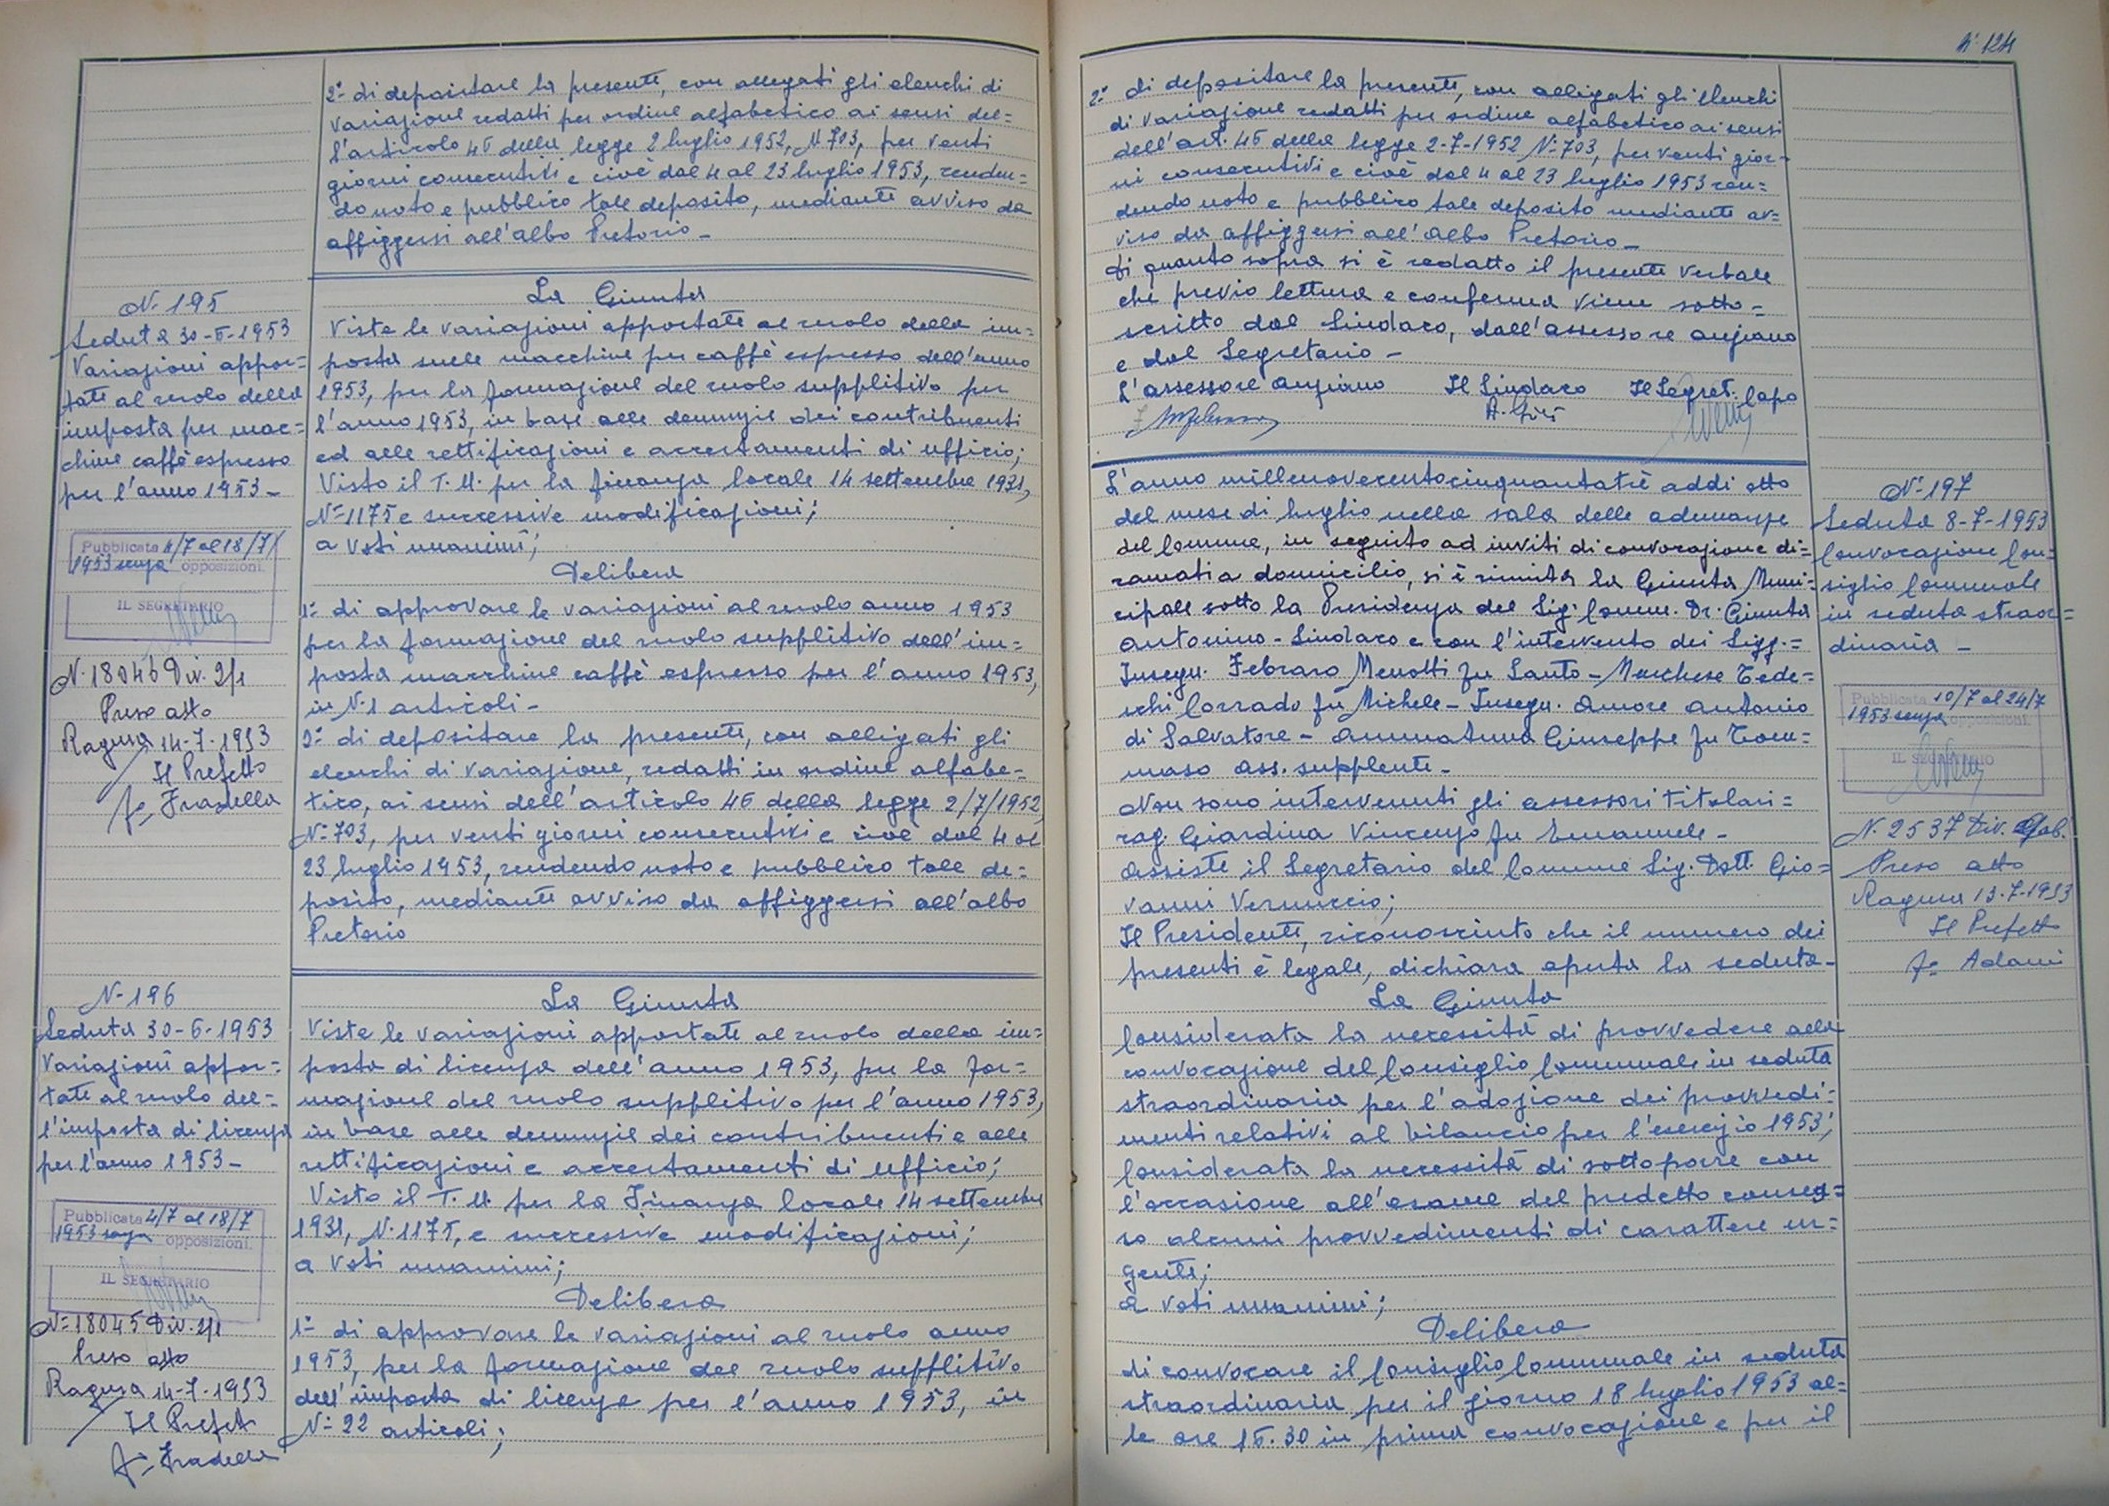 2º- di depositare la presente, con allegati gli elenchi di
variazione redatti per ordine alfabetico ai sensi del=
l'articolo 45 della legge 2 luglio 1952, N. 703, per venti
giorni consecutivi e cioè dal 4 al 23 luglio 1953, renden=
do noto e pubblico tale deposito, mediante avviso da
affiggersi all'albo Pretorio -
N. 195
Seduta 30-6-1953
Variazioni appor=
tate al ruolo della
imposta per mac=
chine caffè espresso
per l'anno 1953 -
Pubblicata 4/7 al 18/7/
1953 senza opposizioni.
IL SEGRETARIO
N. 18046 Div. 2/1
Preso atto
Ragusa 14-7-1953
Il Prefetto
f= Fradella
La Giunta
Viste le variazioni apportate al ruolo della im=
posta sulle macchine per caffè espresso dell'anno
1953, per la formazione del ruolo supplitivo per
l'anno 1953, in base alle denunzie dei contribuenti
ed alle rettificazioni e accertamenti di ufficio;
Visto il T. U. per la finanza locale 14 settembre 1931,
N= 1175 e successive modificazioni;
a voti unanimi;
Delibera
1º- di approvare le variazioni al ruolo anno 1953
per la formazione del ruolo supplitivo dell'im=
posta macchine caffè espresso per l'anno 1953,
in N. 1 articoli -
2º- di depositare la presente, con allegati gli
elenchi di variazione, redatti in ordine alfabe=
tico, ai sensi dell'articolo 45 della legge 2/7/1952,
N= 703, per venti giorni consecutivi e cioè dal 4 al
23 luglio 1953, rendendo noto e pubblico tale de=
posito, mediante avviso da affiggersi all'albo
Pretorio
N- 196
Seduta 30-6-1953
Variazioni appor=
tate al ruolo del=
l'imposta di licenza
per l'anno 1953 -
Pubblicata 4/7 al 18/7
1953 senza opposizioni.
IL SEGRETARIO
N= 18045 Div. 2/1
Preso atto
Ragusa 14-7-1953
Il Prefetto
f= Fradella
La Giunta
Viste le variazioni apportate al ruolo della im=
posta di licenza dell'anno 1953, per la for=
mazione del ruolo supplitivo per l'anno 1953,
in base alle denunzie dei contribuenti e alle
rettificazioni e accertamenti di ufficio;
Visto il T. U. per la Finanza locale 14 settembre
1931, N. 1175, e successive modificazioni;
a voti unanimi;
Delibera
1º- di approvare le variazioni al ruolo anno
1953, per la formazione del ruolo supplitivo
dell'imposta di licenza per l'anno 1953, in
N= 22 articoli;
Nº 124
2º- di depositare la presente, con allegati gli elenchi
di variazione redatti per ordine alfabetico ai sensi
dell'art. 45 della legge 2-7-1952 N= 703, per venti gior=
ni consecutivi e cioè dal 4 al 23 luglio 1953 ren=
dendo noto e pubblico tale deposito mediante av=
viso da affiggersi all'Albo Pretorio -
Di quanto sopra si è redatto il presente verbale
che previo lettura e conferma viene sotto=
scritto dal Sindaco, dall'assessore anziano
e dal Segretario -
L'assessore anziano Il Sindaco Il Segret. Capo
L'anno millenovecentocinquantatrè addì otto
del mese di luglio nella sala delle adunanze
del Comune, in seguito ad inviti di convocazione di=
ramati a domicilio, si è riunita la Giunta Muni=
cipale sotto la Presidenza del Sig. Comm. Dr. Giunta
Antonino - Sindaco e con l'intervento dei Sigg.=
Insegn. Febraro Menotti fu Santo - Marchese Tede=
schi Corrado fu Michele - Insegn. Amore Antonio
di Salvatore - Ammatuna Giuseppe fu Tom=
maso Ass. supplente -
Non sono intervenuti gli assessori titolari=
rag. Giardina Vincenzo fu Emanuele -
Assiste il Segretario del Comune Sig. Dott. Gio=
vanni Vernuccio;
Il Presidente, riconosciuto che il numero dei
presenti è legale, dichiara aperta la seduta -
La Giunta
Considerata la necessità di provvedere alla
convocazione del Consiglio Comunale in seduta
straordinaria per l'adozione dei provvedi=
menti relativi al bilancio per l'esercizio 1953;
Considerata la necessità di sottoporre con
l'occasione all'esame del predetto conses=
so alcuni provvedimenti di carattere ur=
gente;
a voti unanimi;
Delibera
di convocare il Consiglio Comunale in seduta
straordinaria per il giorno 18 luglio 1953 al=
le ore 16.30 in prima convocazione e per il
N- 197
Seduta 8-7-1953
Convocazione Con=
siglio Comunale
in seduta straor=
dinaria -
Pubblicata 10/7 al 24/7
1953 senza opposizioni.
IL SEGRETARIO
N. 2537 Div. Gab.
Preso atto
Ragusa 13-7-1953
Il Prefetto
f= Adami